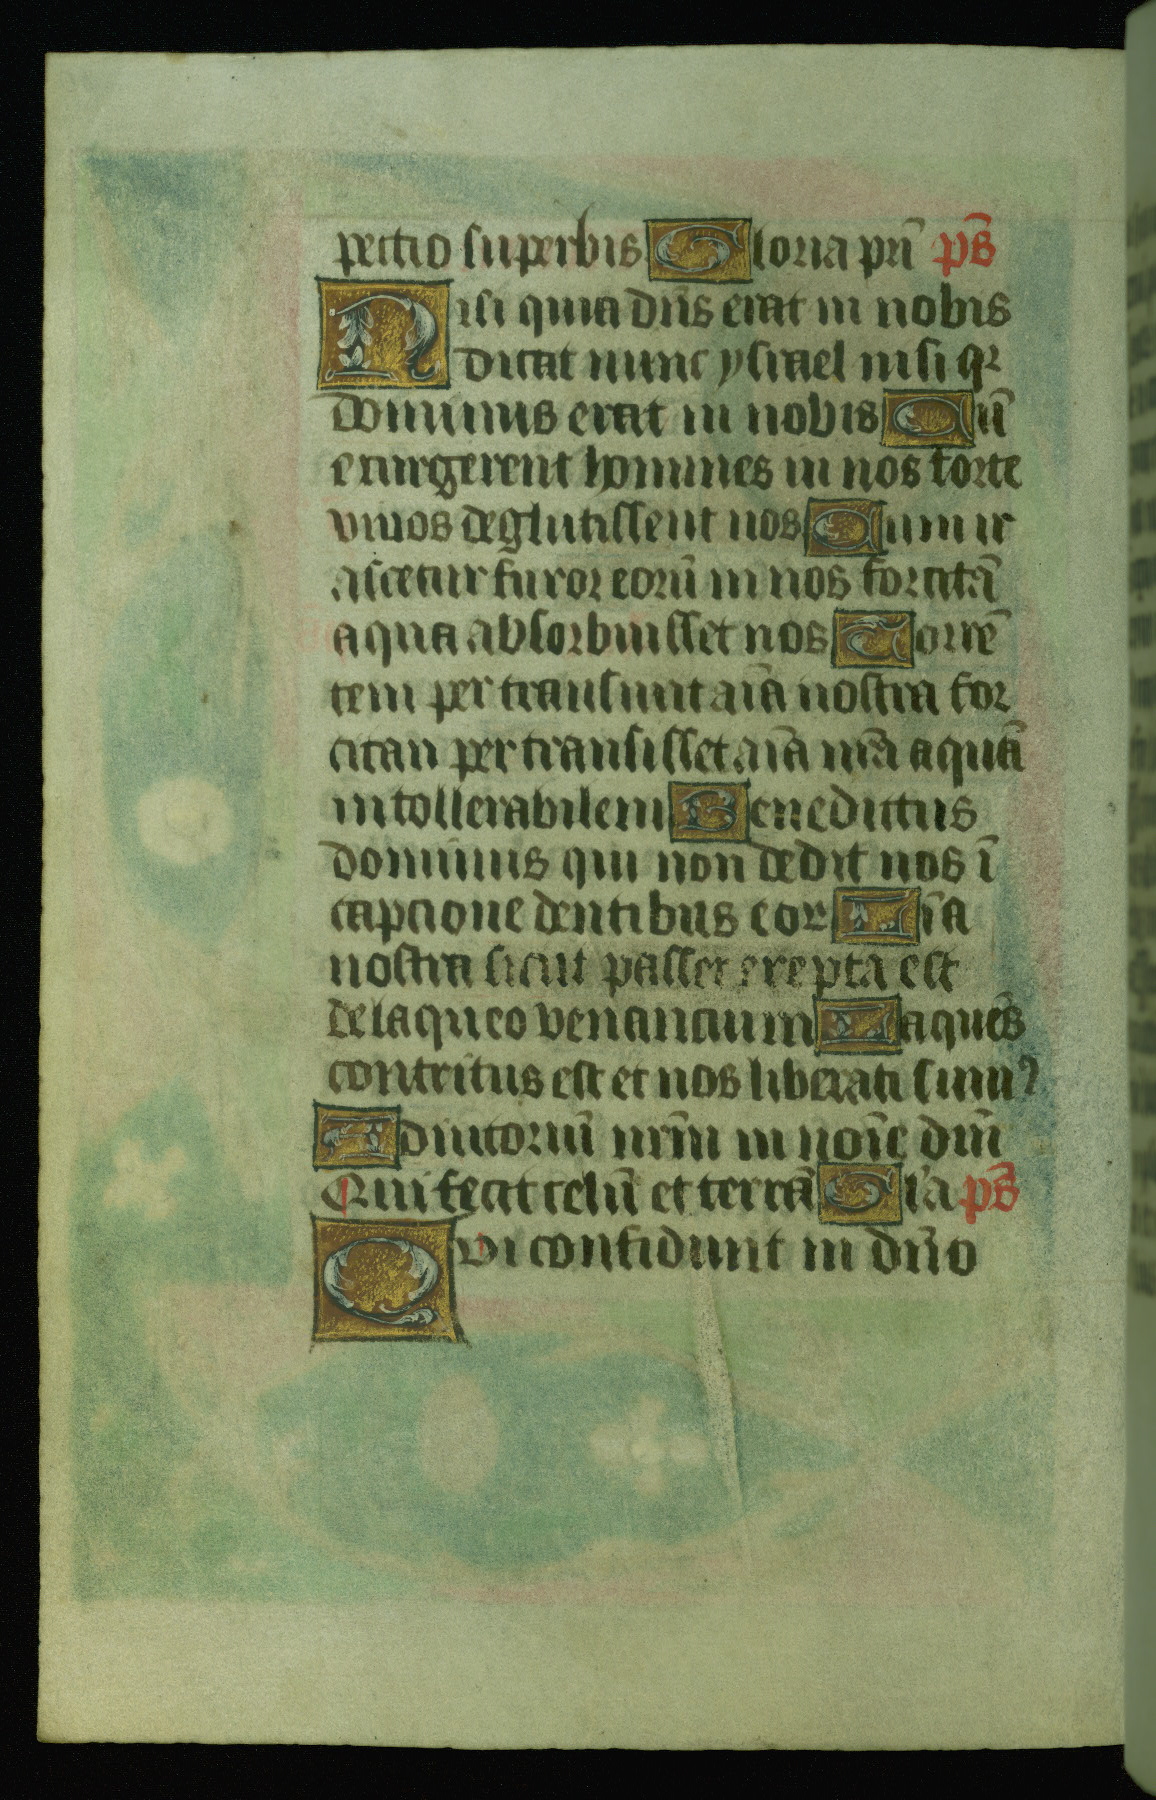 pectio superbis Gloria pr̄i ps̄
Nisi quia dn̄s erat in nobis
dicat nunc ysrael nisi qr
dominus erat in nobis Cū
exurgerent homines in nos forte
viuos deglutissent nos Cum ir
ascetur furor eorū in nos forcitā
aqua absorbuisset nos Torrē
tem pertransiuit aīa nostra for
citan pertransisset aīa nr̄a aquā
intollerabilem Benedictus
dominus qui non dedit nos ī
capcione dentibus eor Aīa
nostra sicut passer erepta est
de laqueo venancium Laqueus
contritus est et nos liberati sumꝰ
Adiutoriū nrm̄ in noīe dnī
Qui fecit celū et terrā Gl'a ps̄
Qvi confidunt in dn̄o